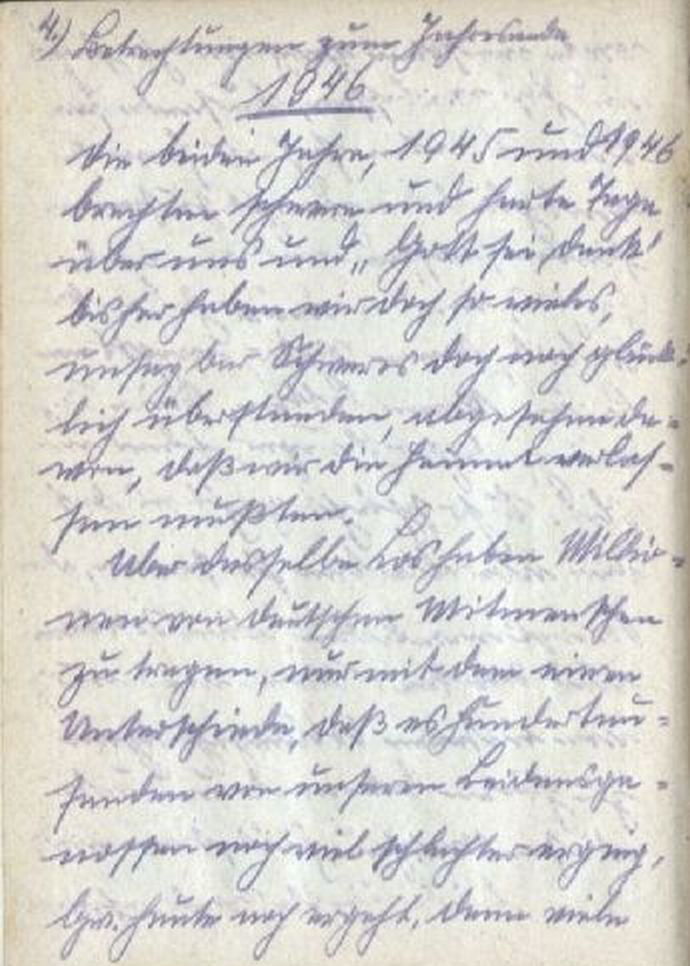 4.) Betrachtungen zum Jahresende
1946
Die beiden Jahre, 1945 und 1946
brachten schwere und harte Tage
über uns und „Gott sei Dank"
bisher haben wir doch so vieles,
unsagbar Schweres doch noch glück-
lich überstanden, abgesehen da-
von, daß wir die Heimat verlas-
sen mußten.
Aber dasselbe Los haben Millio-
nen von deutschen Mitmenschen
zu tragen, nur mit dem einen
Unterschiede, daß es Hunderttau-
senden von unseren Leidensge-
nossen noch viel schlechter erging,
bzw. heute noch ergeht, denn viele